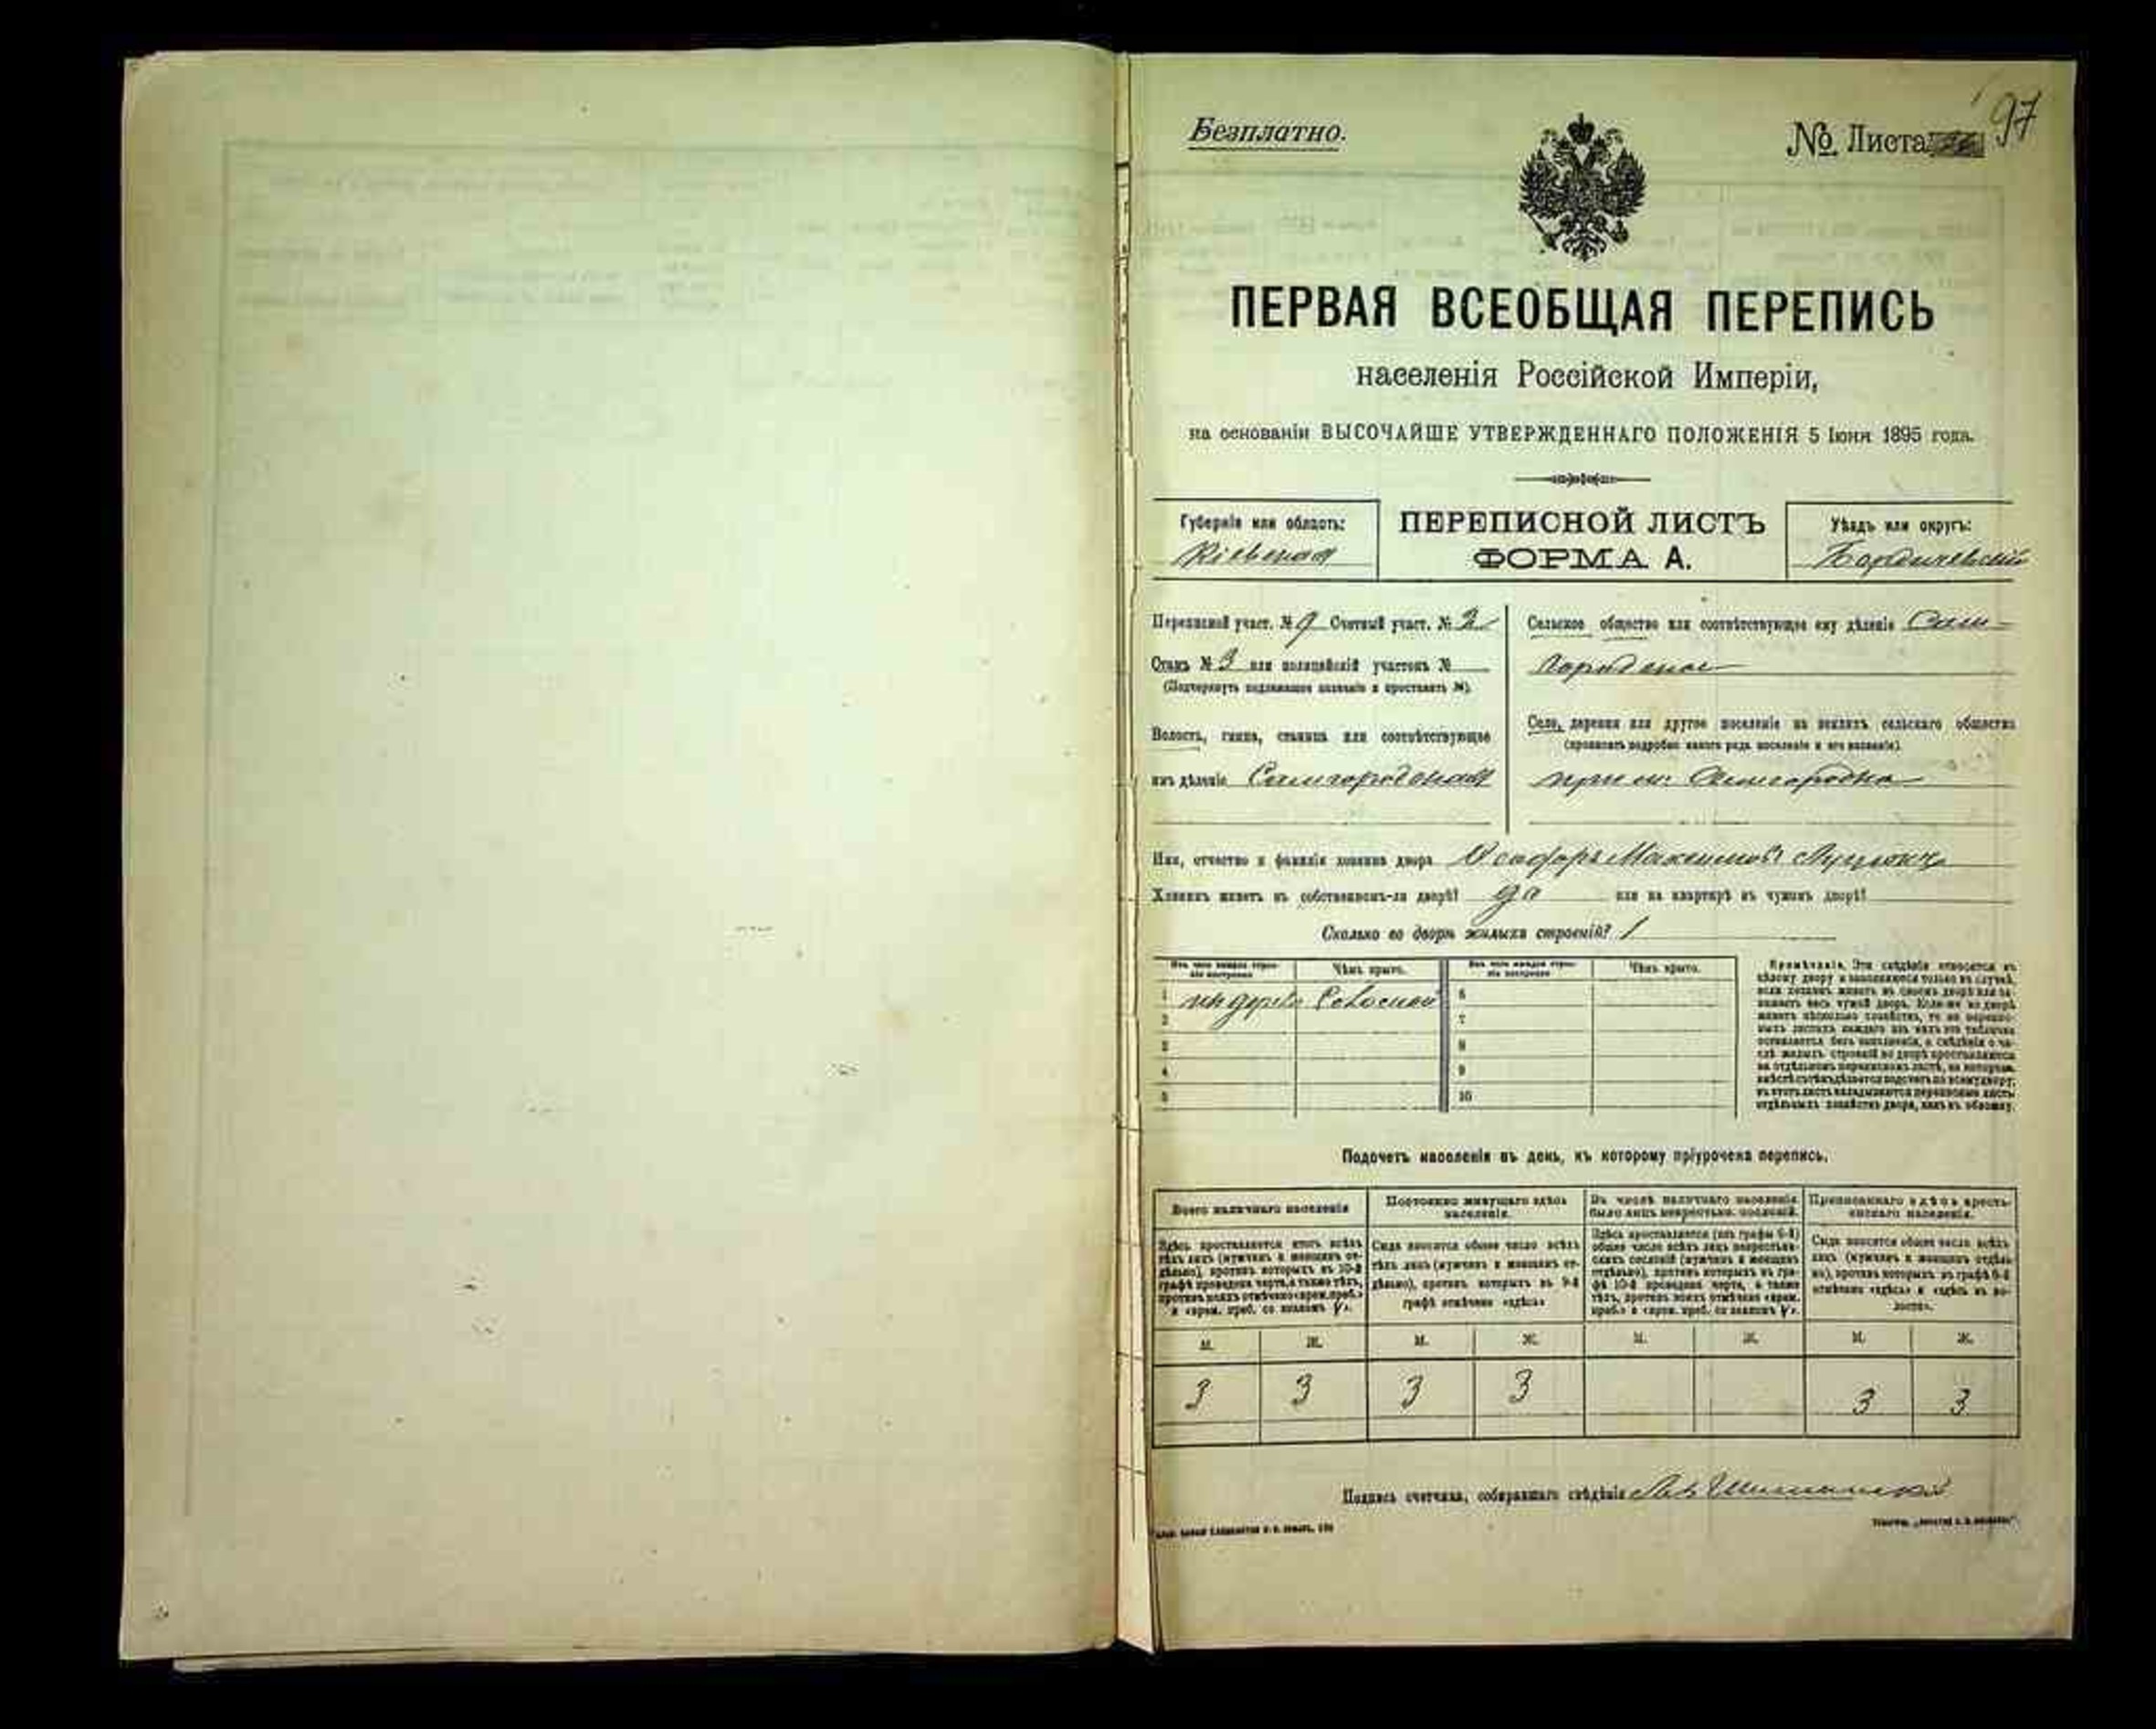 Безплатно.
№ Листа 97
ПЕРВАЯ ВСЕОБЩАЯ ПЕРЕПИСЬ
населенія Россійской Имперіи,
на основаніи ВЫСОЧАЙШЕ УТВЕРЖДЕННАГО ПОЛОЖЕНІЯ 5 Іюня 1895 года.
Губернія или область:
Кіевская
ПЕРЕПИСНОЙ ЛИСТЪ
ФОРМА А.
Уѣздъ или округъ:
Бердичевскій
Переписной участ. № 9 Счетный участ. № 2
Станъ № 3 или полицейскій участокъ №
(Подчеркнуть подлежащее названіе и проставить №).
Волость, гмина, станица или соотвѣтствующее
имъ дѣленіе Самгородская
Сельское общество или соотвѣтствующее ему дѣленіе Сам-
городское
Село, деревня или другое поселеніе на земляхъ сельскаго общества
(прописать подробно какого рода поселеніе и его названіе).
при м. Самгородка
Имя, отчество и фамилія хозяина двора Максимовъ
Хозяинъ живетъ въ собственномъ-ли дворѣ? да или на квартирѣ въ чужомъ дворѣ?
Сколько во дворѣ жилыхъ строеній? 1
Изъ чего каждое строе-
ніе построено
Чѣмъ крыто.
Изъ чего каждое строе-
ніе построено
Чѣмъ крыто.
1 изъ дерева Соломой 6
2 7
3 8
4 9
5 10
Примѣчаніе. Эти свѣдѣнія относятся къ
цѣлому двору и заполняются только въ случаѣ,
если хозяинъ живетъ въ своемъ дворѣ или за-
нимаетъ весь чужой дворъ. Если-же во дворѣ
живетъ нѣсколько хозяйствъ, то на перепис-
ныхъ листахъ каждаго изъ нихъ эта табличка
оставляется безъ заполненія, а свѣдѣнія о чи-
слѣ жилыхъ строеній во дворѣ проставляются
на отдѣльномъ переписномъ листѣ, на которомъ
вмѣстѣ съ тѣмъ дѣлается подсчетъ по всему двору;
въ этотъ листъ вкладываются переписные листы
отдѣльныхъ хозяйствъ двора, какъ въ обложку.
Подсчетъ населенія въ день, къ которому пріурочена перепись.
Всего наличнаго населенія
Здѣсь проставляется итогъ всѣхъ
тѣхъ лицъ (мужчинъ и женщинъ от-
дѣльно), противъ которыхъ въ 10-й
графѣ проведена черта, а также тѣхъ,
противъ коихъ отмѣчено «врем. преб.»
и «врем. преб. со знакомъ V».
Постоянно живущаго здѣсь
населенія.
Сюда вносится общее число всѣхъ
тѣхъ лицъ (мужчинъ и женщинъ от-
дѣльно), противъ которыхъ въ 9-й
графѣ отмѣчено «здѣсь»
Въ числѣ наличнаго населенія
было лицъ некрестьян. сословій.
Здѣсь проставляется (изъ графы 6-й)
общее число всѣхъ лицъ некрестьян-
скихъ сословій (мужчинъ и женщинъ
отдѣльно), противъ которыхъ въ гра-
фѣ 10-й проведена черта, а также
тѣхъ, противъ коихъ отмѣчено «врем.
преб.» и «врем. преб. со знакомъ V».
Приписаннаго здѣсь кресть-
янскаго населенія.
Сюда вносится общее число всѣхъ
лицъ (мужчинъ и женщинъ отдѣль-
но), противъ которыхъ въ графѣ 8-й
отмѣчено «здѣсь» и «здѣсь въ во-
лости».
М. Ж. М. Ж. М. Ж. М. Ж.
3 3 3 3 3 3
Подпись счетчика, собиравшаго свѣдѣнія